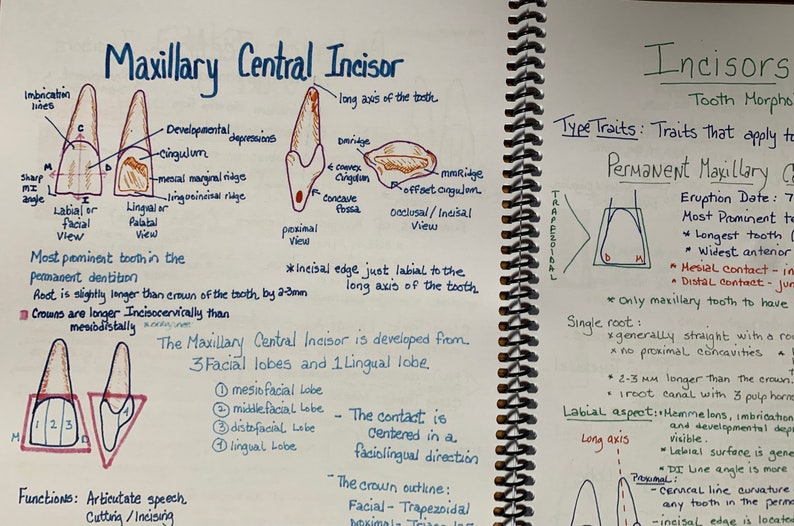 Maxillary Central Incisor
Imbrication
lines
C
M
D
I
Sharp
MI
angle
Labial or
facial
View
Developmental depressions
Cingulum
mesial marginal ridge
linguoincisal ridge
Lingual or
Palatal
View
long axis of the tooth
convex
Cingulum
Concave
fossa
proximal
view
DmRidge
mmRidge
offset cingulum
Occlusal/Incisal
View
*Incisal edge just labial to the
long axis of the tooth
Most prominent tooth in the
permanent dentition
Root is slightly longer than crown of the tooth by 2-3mm
Crowns are longer Incisocervically than
mesiodistally
The Maxillary Central Incisor is developed from
3 Facial lobes and 1 Lingual lobe.
① mesiofacial Lobe
② middlefacial Lobe
③ distofacial Lobe
④ lingual Lobe
M
1 2 3
D
4
- The contact is
centered in a
faciolingual direction
- The crown outline:
Facial - Trapezoidal
Functions: Articutate speech
Cutting/Incising
Incisors
Tooth Morpho
Type Traits: Traits that apply t
Permanent Maxillary C
TRAPEZOIDAL
D M
Eruption Date: 7
Most Prominent to
* Longest tooth (
* Widest anterior
* Mesial contact - in
* Distal contact - jun
* Only maxillary tooth to have
Single root:
*generally straight with a ro
* no proximal concavities
* 2-3 mm longer than the crown.
* 1 root canal with 3 pulp horns
Labial aspect: Memmelons, imbrication
and developmental dep
visible.
* Labial surface is gene
* DI Line angle is more
Long axis
Proximal:
- cervical line curvature
any tooth in the perma
- incisal edge is locate